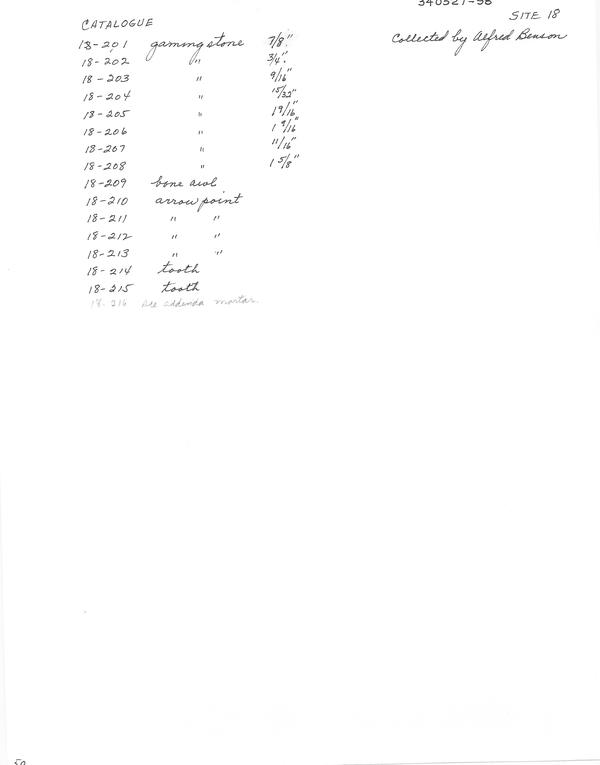 340527-58
SITE 18
CATALOGUE
Collected by Alfred Benson
18-201 gaming stone 7/8"
18-202 " 3/4"
18-203 " 9/16"
18-204 " 15/32"
18-205 " 1 9/16"
18-206 " 1 9/16"
18-207 " 11/16"
18-208 " 1 5/8"
18-209 bone awl
18-210 arrow point
18-211 " "
18-212 " "
18-213 " "
18-214 tooth
18-215 tooth
18-216 see addenda mortar